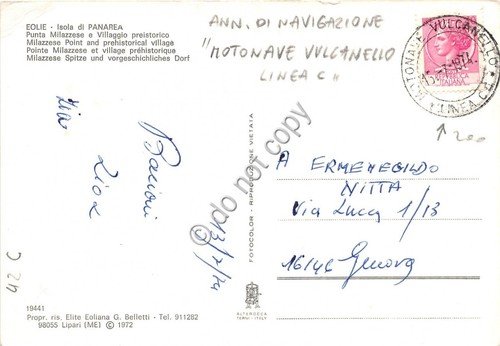 EOLIE - Isola di PANAREA
Punta Milazzese e Villaggio preistorico
Milazzese Point and prehistorical village
Pointe Milazzese et village préhistorique
Milazzese Spitze und vorgeschichliches Dorf
ANN. DI NAVIGAZIONE
"MOTONAVE VULCANELLO
LINEA C"
MOTONAVE VULCANELLO
LINEA C
Bacioni
Zia
13/7/74
FOTOCOLOR - RIPRODUZIONE VIETATA
©do not copy
A ERMENEGILDO
NITTA
Via Lucca 1/13
16146 Genova
42 C
19441
Propr. ris. Elite Eoliana G. Belletti - Tel. 911282
98055 Lipari (ME) © 1972
ALTEROCCA
TERNI - ITALY